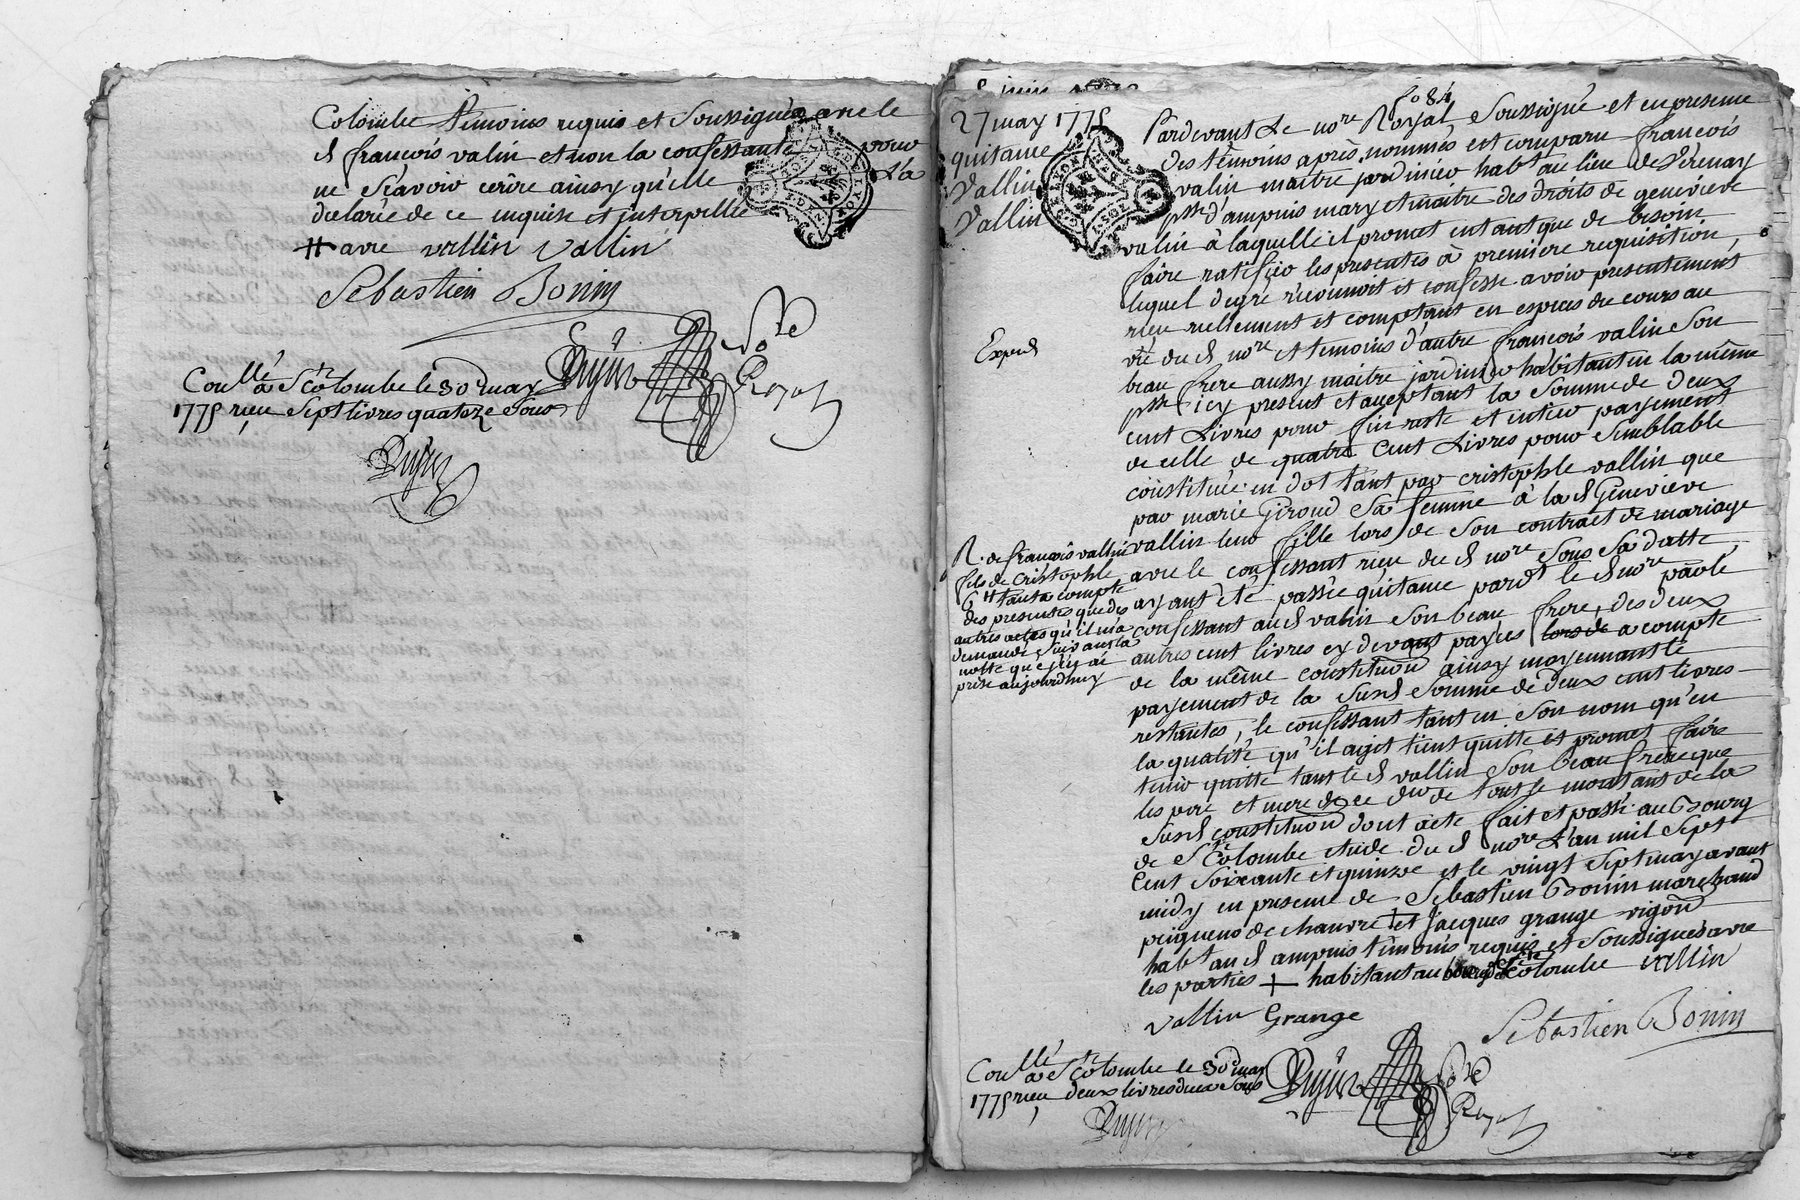 Colombe témoins requis et soussignés avec le
d françois valin et non la confessante pour
ne sçavoir ecrire ainsy qu'elle l'a
declaré de ce enquise et interpellée
avec vallin vallin
Sebastien Bonin
Con.llé a Ste Colombe le 30 may
1775 reçu sept livres quatorze sous
Nore
Royal
fo 84
27 may 1775
quitance
Vallin
Vallin
Expédé
Pardevant Le nore Royal soussigné et en presence
des témoins après nommés est comparu françois
valin maitre jardinier habt au lieu de Vérenay
psse d'ampuis mary et maitre des droits de genevieve
valin à laquelle il promet en tant que de besoin
faire ratifier les presentes à premiere requisition,
lequel degré reconnoit et confesse avoir presentement
reçu reellement et comptant en especes du cours au
vû du d nore et temoins d'autre françois valin son
beau frere aussy maitre jardinier habitant en la même
psse icy present et acceptant la somme de deux
cent Livres pour fin reste et entier payement
de celle de quatre cent Livres pour semblable
constituée en dot tant par cristophle vallin que
par marie Giroud sa femme à la d Genevieve
vallin leur fille lors de son contract de mariage
avec le confessant reçu du d nore sous sa datte,
ayant été passée quitance pardt le d nore par le
confessant au d valin son beau frere, des deux
autres cent livres cy devant payées lors de a compte
de la même constitution ainsy moyennant le
payement de la susd somme de deux cent livres
restantes, le confessant tant en son nom qu'en
la qualité qu'il agit tient quitte et promet faire
tenir quitte tant le d vallin son beau frere que
les pere et mere de ce der de tout le montant de la
susd constitution dont acte fait et passé au Bourg
de Ste Colombe etude du d nore L'an mil sept
Cent soixante et quinze et le vingt sept may avant
midy en presence de Sebastien Bonin marchand
peigneur de chanvre + et Jacques grange vigon
habt au d ampuis témoins requis et soussignés avec
les parties + habitant au bourg de Ste Colombe vallin
R. de françois vallin
fils de Cristophle
6 ₶ tant a compte
des presentes que des
autres actes qu'il m'a
demandé suivant la
notte que j'en ai
prise aujourdhuy
Vallin Grange
Sebastien Bonin
Con.llé a Ste Colombe le 30 may
1775 reçu deux livres deux sous
Nore
Royal